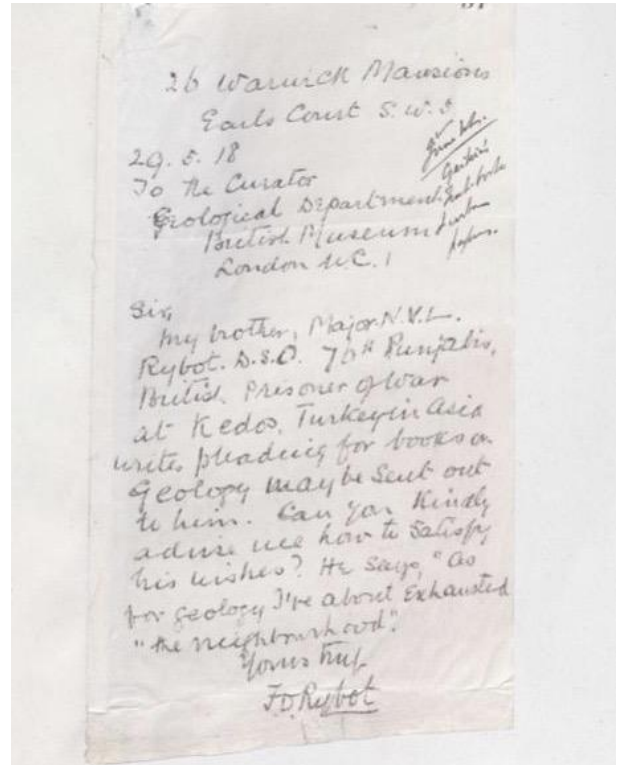 26 Warwick Mansions
Earls Court S.W.5
29.5.18
To the Curator
Geological Department
British Museum
London W.C.1
Sir,
My brother, Major N.V.L.
Rybot. D.S.O. 76th Punjabis,
British Prisoner of War
at Kedos, Turkey in Asia
writes pleading for books on
Geology may be sent out
to him. Can you kindly
advise me how to satisfy
his wishes? He says, "As
for geology I've about Exhausted
"the neighbourhood".
Yours truly
F.D. Rybot